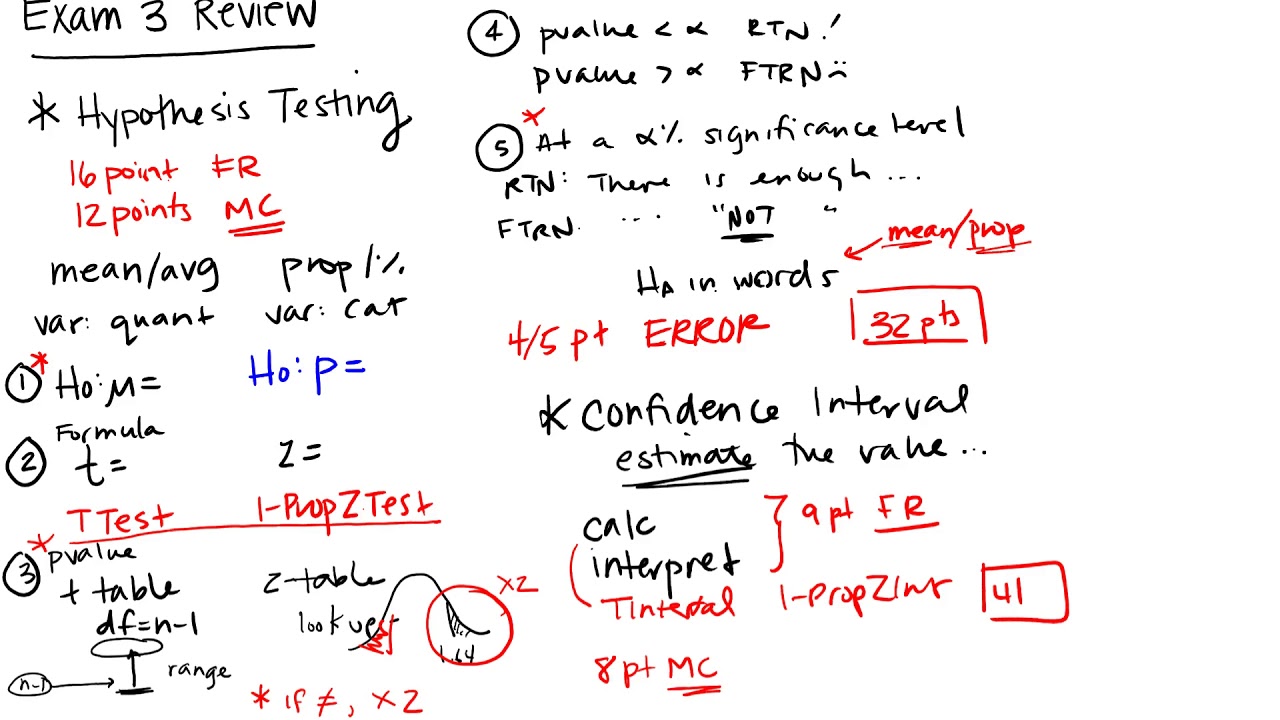 Exam 3 Review
* Hypothesis Testing
16 point FR
12 points MC
mean/avg prop/%
var: quant var: cat
① * Ho: μ= Ho: p=
② Formula
t= z=
TTest 1-PropZTest
③ * pvalue
t table z-table
df=n-1 look up
1.64
×2
n-1 range
* if ≠, ×2
④ pvalue < α RTN!
pvalue > α FTRN ☹
⑤ * At a α% significance level
RTN: There is enough ...
FTRN. ... "NOT "
mean/prop
HA in words
4/5 pt ERROR 32 pts
* Confidence Interval
estimate the value...
calc
interpret } 9 pt FR
TInterval 1-PropZInt 41
8 pt MC